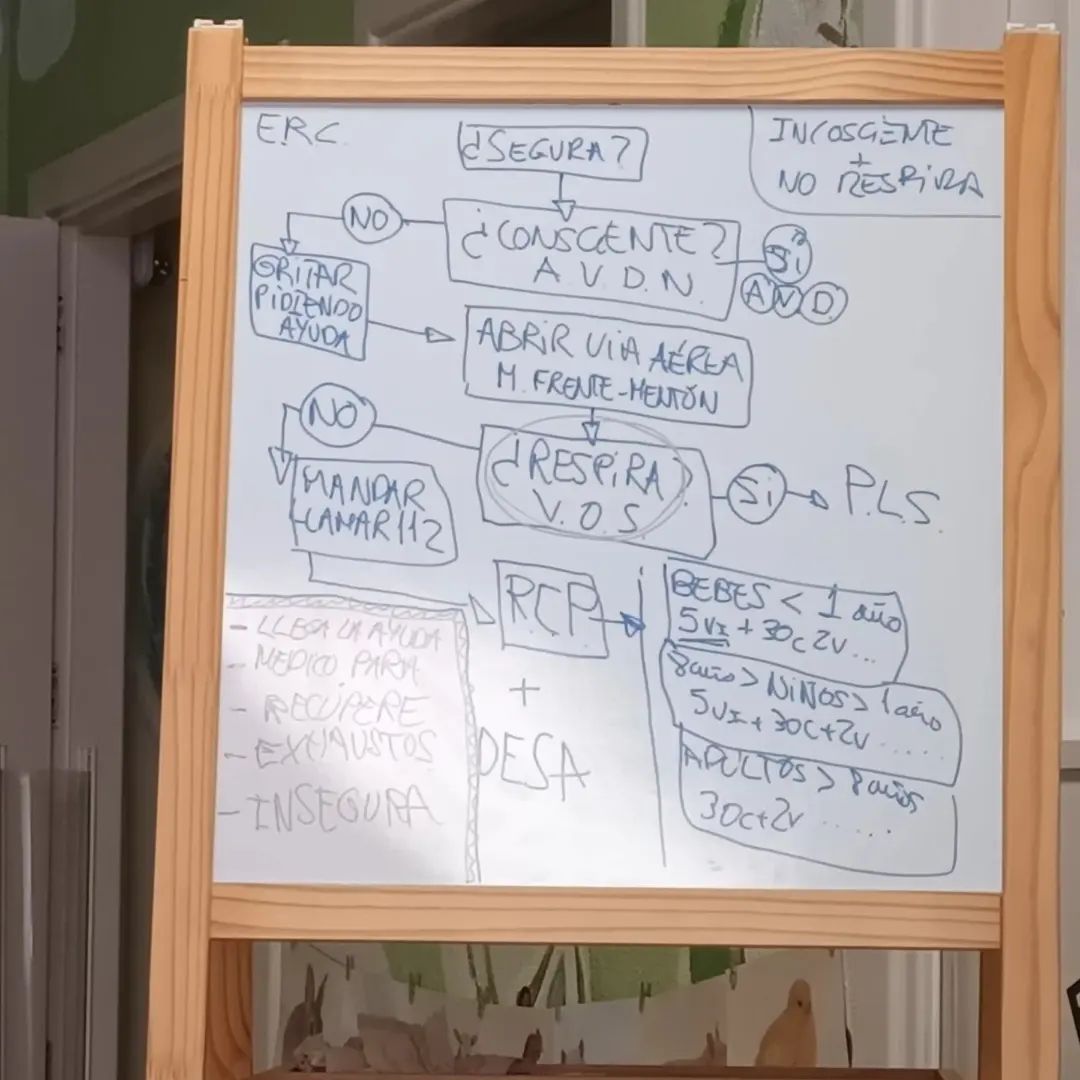 E.R.C.
¿SEGURA?
INCOSCIENTE
+
NO RESPIRA
NO
¿CONSCIENTE?
A.V.D.N.
SI
A V D
GRITAR
PIDIENDO
AYUDA
ABRIR VIA AÉREA
M. FRENTE-MENTÓN
NO
¿RESPIRA?
V.O.S.
SI
P.L.S.
MANDAR
LLAMAR 112
RCP
+
DESA
BEBES < 1 año
5VI + 30C 2V...
8 años > NIÑOS > 1 año
5VI + 30C+2V .....
ADULTOS > 8 años
30C+2V ......
- LLEGA LA AYUDA
- MEDICO PARIA
- RECUPERE
- EXHAUSTOS
- INSEGURA